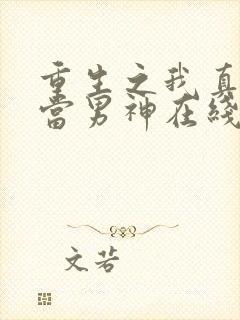 重生之我真
当男神在线
文若